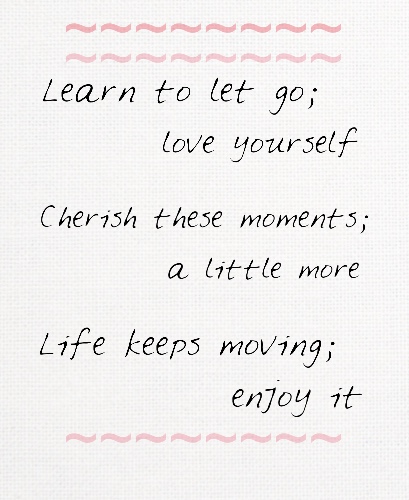 Learn to let go;
love yourself
Cherish these moments;
a little more
Life keeps moving;
enjoy it